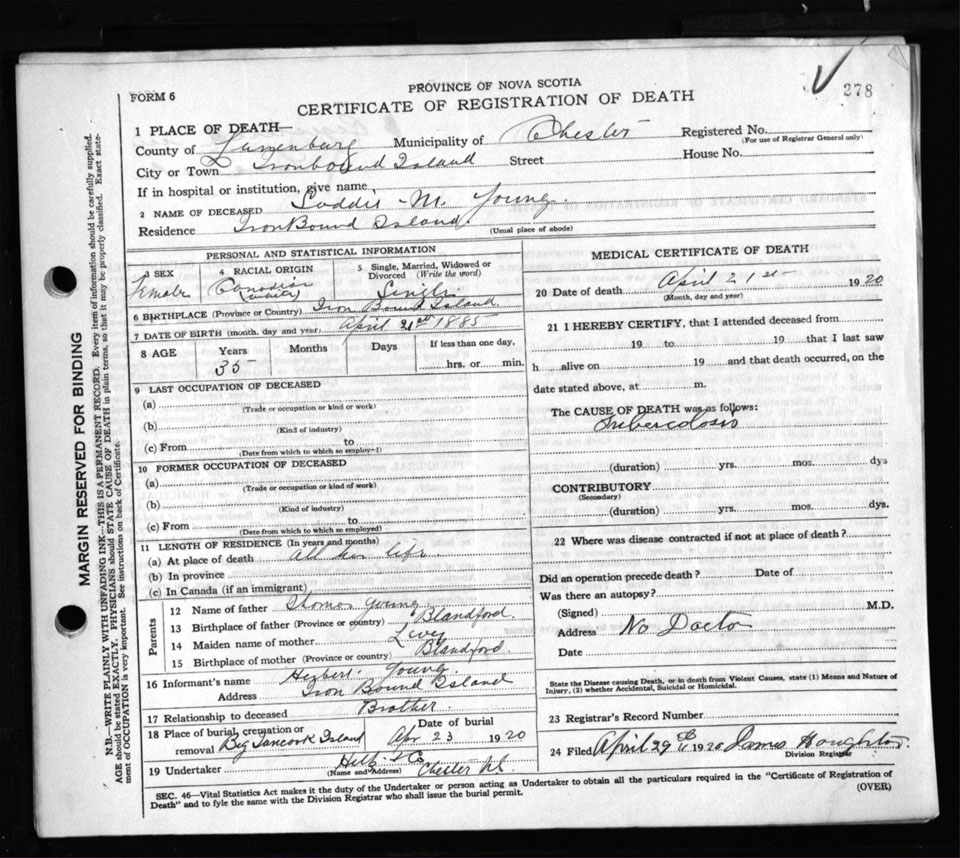 PROVINCE OF NOVA SCOTIA
278
FORM 6
CERTIFICATE OF REGISTRATION OF DEATH
1 PLACE OF DEATH—
County of Lunenburg Municipality of Chester Registered No.
(For use of Registrar General only)
City or Town Ironbound Island Street House No.
If in hospital or institution, give name
2 NAME OF DECEASED M. Young
Residence Iron Bound Island.
(Usual place of abode)
PERSONAL AND STATISTICAL INFORMATION
3 SEX
Female
4 RACIAL ORIGIN
Canadian
(White)
5 Single, Married, Widowed or Divorced (Write the word)
Single
6 BIRTHPLACE (Province or Country) Iron Bound Island
7 DATE OF BIRTH (month, day and year) April 21st 1885
8 AGE Years Months Days If less than one day,
35 hrs. or min.
9 LAST OCCUPATION OF DECEASED
(a)
(Trade or occupation or kind or work)
(b)
(Kind of industry)
(c) From to
(Date from which to which so employed)
10 FORMER OCCUPATION OF DECEASED
(a)
(Trade or occupation or kind of work)
(b)
(Kind of industry)
(c) From to
(Date from which to which so employed)
11 LENGTH OF RESIDENCE (In years and months)
(a) At place of death All her life
(b) In province
(c) In Canada (if an immigrant)
Parents
12 Name of father Thomas Young
13 Birthplace of father (Province or country) Blandford.
14 Maiden name of mother
15 Birthplace of mother (Province or country) Blandford.
16 Informant's name Herbert Young.
Address Iron Bound Island
17 Relationship to deceased Brother.
18 Place of burial, cremation or removal Big Tancook Island
Date of burial
Apr 23 1920
19 Undertaker Chester NS
(Name and Address)
MEDICAL CERTIFICATE OF DEATH
20 Date of death April 21st 1920
(Month, day and year)
21 I HEREBY CERTIFY, that I attended deceased from
19 to 19 that I last saw
h alive on 19 and that death occurred, on the
date stated above, at m.
The CAUSE OF DEATH was as follows:
Tuberculosis
(duration) yrs. mos. dys
CONTRIBUTORY
(Secondary)
(duration) yrs. mos. dys.
22 Where was disease contracted if not at place of death?
Did an operation precede death? Date of
Was there an autopsy?
(Signed) M.D.
Address No Doctor
Date
State the Disease causing Death, or in death from Violent Causes, state (1) Means and Nature of
Injury, (2) whether Accidental, Suicidal or Homicidal.
23 Registrar's Record Number
24 Filed April 29th 1920 James Houghton.
Division Registrar
SEC. 46—Vital Statistics Act makes it the duty of the Undertaker or person acting as Undertaker to obtain all the particulars required in the "Certificate of Registration of
Death" and to fyle the same with the Division Registrar who shall issue the burial permit.
(OVER)
MARGIN RESERVED FOR BINDING
N.B.—WRITE PLAINLY WITH UNFADING INK—THIS IS A PERMANENT RECORD. Every item of information should be carefully supplied.
AGE should be stated EXACTLY. PHYSICIANS should STATE CAUSE OF DEATH in plain terms, so that it may be properly classified. Exact state-
ment of OCCUPATION is very important. See instructions on back of Certificate.